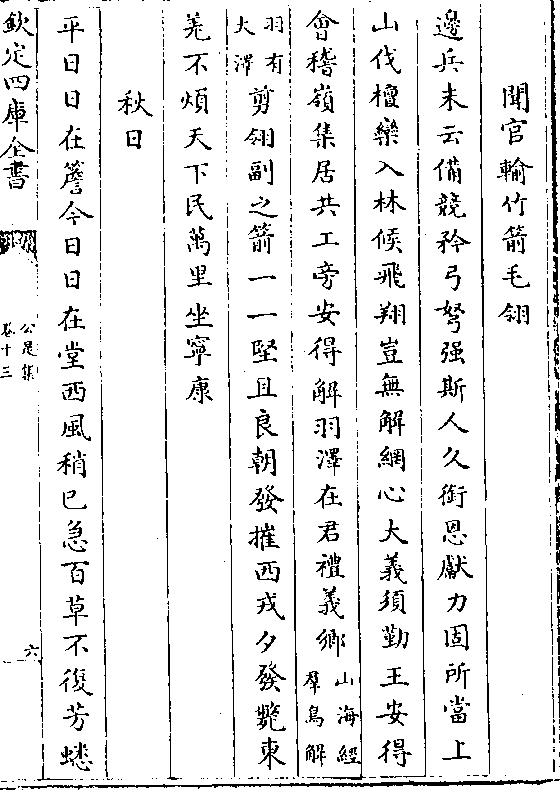 聞官輸竹箭毛翎
邊兵未云備競矜弓弩强斯人久銜恩獻力固所當上
山伐檀欒入林候飛翔豈無解網心大義須勤王安得
會稽嶺集居共工旁安得解羽澤在君禮義鄉山海經羣鳥解
羽有大澤剪翎副之箭一一堅且良朝發摧西戎夕發斃東
羌不煩天下民萬里坐寧康
秋日
平日日在簷今日日在堂西風稍已急百草不復芳蟋
欽定四庫全書
公是集
卷十三
六